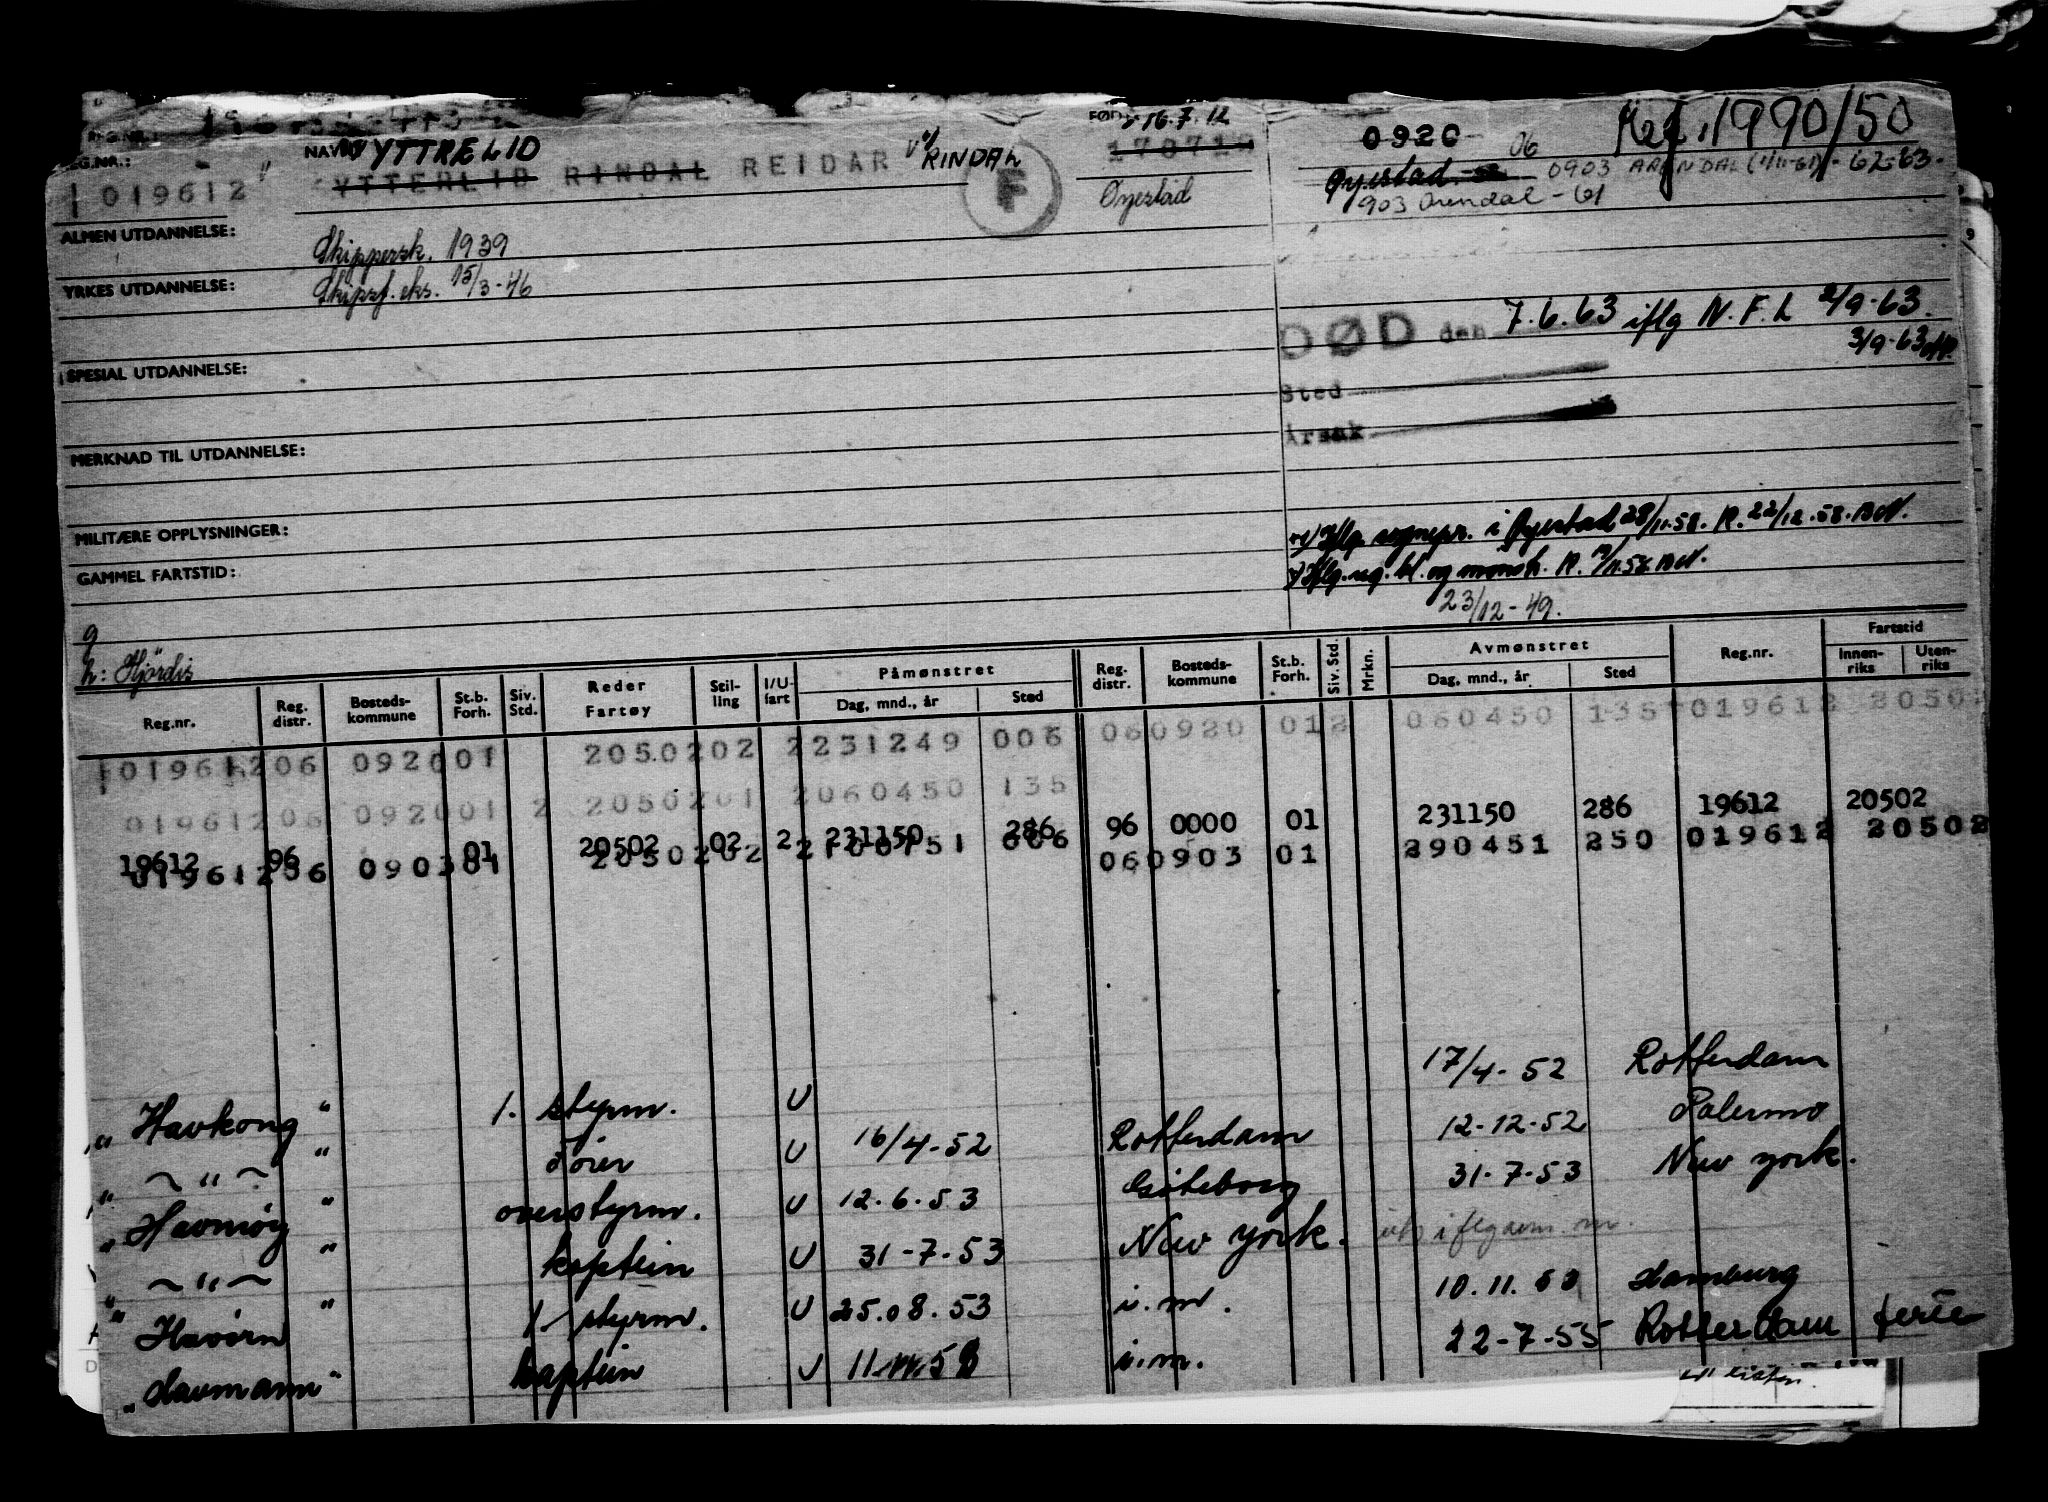 REG.NR.: NAVN YTTRELID FØDT 16.7.12 0920 06 1990/50
REG.NR.: YTTERLID RINDAL REIDAR RINDAL 170712 Øyestad 0903 ARENDAL (1/11-61) - 62-63.
019612 F Øyestad 903 Arendal - 61
ALMEN UTDANNELSE: Skippersk. 1939
YRKES UTDANNELSE: Skipsf. eks. 15/3-46
DØD den 7.6.63 iflg N.F.L 2/9-63.
3/9-63
SPESIAL UTDANNELSE:
Sted
Årsak
MERKNAD TIL UTDANNELSE:
MILITÆRE OPPLYSNINGER:
Iflg sognepr. i Øyestad 28/11.58. R. 22/12.58. BN.
GAMMEL FARTSTID:
Iflg. og mønstr. R.
23/12-49.
g
h: Hjördis
Reg.nr. Reg. distr. Bosteds-kommune St.b. Forh. Siv. Std. Reder Fartøy Stil-ling I/U-fart Påmønstret Dag, mnd., år Sted Reg. distr. Bosteds-kommune St.b. Forh. Siv. Std. Mrkn. Avmønstret Dag, mnd., år Sted Reg.nr. Fartstid Innen-riks Uten-riks
019612 06 0920 01 20502 02 2 231249 006 06 0920 01 2 060450 135 019612 20502
019612 06 0920 01 2 20502 01 2 060450 135
19612 96 01 20502 02 2 231150 286 96 0000 01 231150 286 19612 20502
019612 06 0903 01 20502 02 2 06 0903 01 290451 250 019612 20502
" Havkong " 1. styrm. U 17/4-52 Rotterdam
" ~ " ~ " U 16/4-52 Rotterdam 12-12-52 Palermo
" Havmøy " overstyrm. U 12.6.53 Göteborg 31-7-53 New York.
" ~ " ~ " kaptein U 31-7-53 New York. iflg avm. m.
" Havørn " 1. styrm. U 25.08.53 i.m. 10.11.53 Hamburg
" Havmann " kaptein U i.m. 22-7-55 Rotterdam ferie